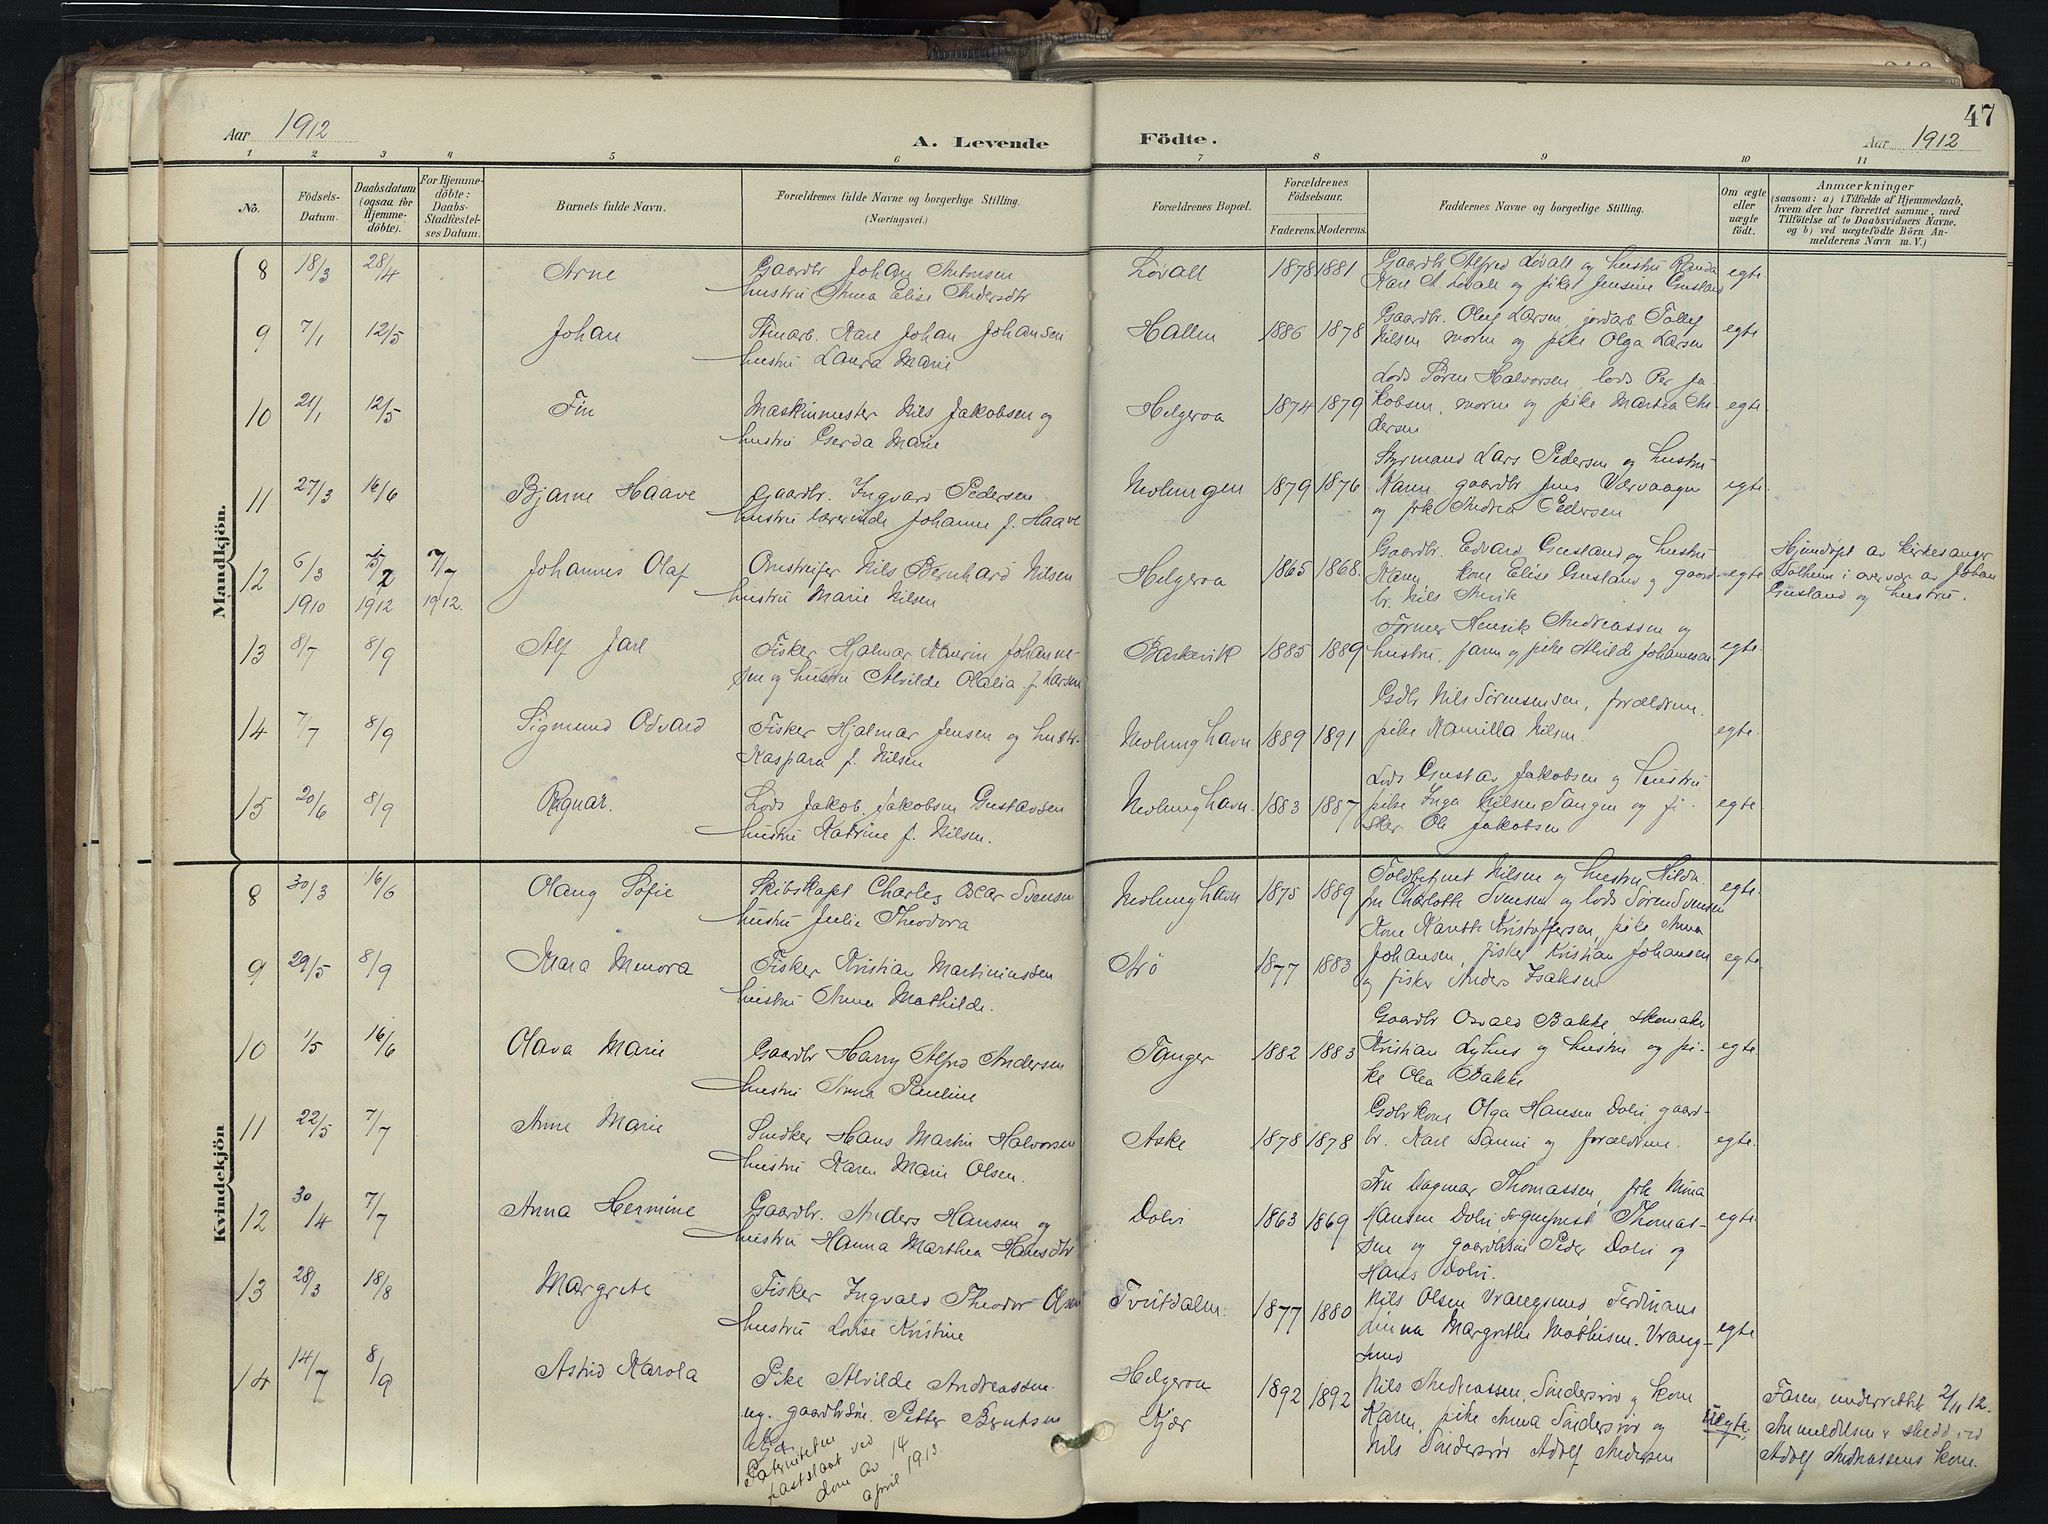 47
Aar 1912
A. Levende
Födte.
Aar 1912
1 2 3 4 5 6 7 8 9 10 11
No.
Födsels-
Datum.
Daabsdatum
(ogsaa for
Hjemme-
döbte).
For Hjemme-
döbte:
Daabs-
Stadfæstel-
ses Datum.
Barnets fulde Navn.
Forældrenes fulde Navne og borgerlige Stilling.
(Næringsvei.)
Forældrenes Bopæl.
Forældrenes
Födselsaar.
Faderens. Moderens.
Faddernes Navne og borgerlige Stilling.
Om ægte
eller
uægte
födt.
Anmærkninger
(saasom: a) i Tilfælde af Hjemmedaab,
hvem der har forrettet samme, med
Tilföielse af to Daabsvidners Navne.
og b) ved uægtefödte Börn An-
melderens Navn m. V.)
Mandkjön.
8 18/3 28/4 Arne
Gaardbr Johan Antonsen
hustru Anna Elise Andersdtr
Løvall 1878 1881
Gaardbr Alfred Løvall og hustru Randa
Karl A Løvall og pike Jensine Gusland
egte
9 7/1 12/5 Johan
Stenarb. Karl Johan Johansen
hustru Laura Marie
Hallen 1886 1878
Gaardbr. Oluf Larsen, jordarb Tollef
Nilsen, moren og pike Olga Larsen
egte
10 21/1 12/5 Fin
Maskinmester Nils Jakobsen og
hustru Gerda Marie
Helgeroa 1874 1879
Lods Søren Halvorsen, lods Per Ja-
kobsen, moren og pike Martea An-
dersen
egte
11 27/3 16/6 Bjarne Haave
Gaardbr. Ingvard Pedersen
hustru lærerinde Johanne f. Haave
Nevlungen 1879 1876
Styrmand Lars Pedersen og hustru
Karen, gaardbr Jens Værvaagen
og frk Andrea Pedersen
egte
12 6/3 1910 1912 7/7 1912. Johannes Olaf
Omstreifer Nils Bernhard Nilsen
hustru Marie Nilsen
Helgeroa 1865 1868.
Gaardbr. Edvard Gusland og hustru
Karen, kone Elise Gusland og gaard-
br. Nils Anvik
egte
Hjemdøpt av kirkesanger
Dalheim i overvær av Johan
Gusland og hustru.
13 8/7 8/9 Alf Jarl
Fisker Hjalmar Kaurin Johanne-
sen og hustru Alvilde Olalia f. Larsen
Barkevik 1885 1889
Former Henrik Andreassen og
hustru, faren og pike Alvilde Johannesen
egte.
14 7/7 8/9 Sigmund Odvard
Fisker Hjalmar Jensen og hustr.
Kaspara f. Nilsen
Nevlunghavn 1889 1891
Gdbr Nils Sørensen, forældrene.
pike Kamilla Nilsen.
egte.
15 20/6 8/9 Ragnar.
Lods Jakob Jakobsen Gustavsen
hustru Katrine f. Nilsen.
Nevlunghavn. 1883 1887
Lods Gustav Jakobsen og hustru
pike Inga Nilsen Tangen og fi-
sker Ole Jakobsen
egte
Kvindekjön
8 30/3 16/6 Olaug Sofie
Skibskapt Charles Oscar Svensen
hustru Julie Theodora
Nevlunghavn 1875 1889
Toldbetjent Nilsen og hustru Hilda
fru Charlotte Svensen og lods Søren Svensen
egte.
9 29/5 8/9 Mara Menora
Fisker Kristian Martiniussen
hustru Anna Mathilde.
Arö 1877 1883
Kone Kanutte Kristoffersen, pike Anna
Johansen, fisker Kristian Johansen
og fisker Anders Isaksen
egte
10 1/5 16/6 Olava Marie
Gaardbr Harry Alfred Andersen
hustru Anna Pauline
Tanger 1882 1883
Gaardbr Osvald Bakke, skomaker
Kristian Lyhus og hustru og pi-
ke Olea Bakke
egte
11 22/5 7/7 Anne Marie
Snedker Hans Martin Halvorsen
hustru Karen Marie Olsen.
Aske 1878 1878
Gdbrkone Olga Hansen Dolvi, gaard-
br. Karl Sanni og forældrene.
egte.
12 30/4 7/7 Anna Hermine
Gaardbr. Anders Hansen og
hustru Hanna Marthea Hansdtr
Dolvi 1863 1869
Fru Dagmar Thomassen, frk Mina
Hansen Dolvi, sogneprest Thomas-
sen og gaardbrsøn Peder Dolvi og
Hans Dolvi.
egte
13 28/3 18/8 Margrete
Fisker Ingvald Theodor Olsen
hustru Lovise Kristine
Tvitdalen. 1877 1880
Nils Olsen Vrangsund, Ferdinand
Margrethe Mathisen Vrang-
sund
egte
14 14/7 8/9 Astrid Karola
Pike Alvilde Andreassen
ug. gaardbrsøn. Petter Berntsen
Kjær
Paterniteten
fastslaat ved
dom av 14
april 1913.
Helgeroa
Kjær
1892 1892
Nils Andreassen, Søndersrød og kone
Karen, pike Anna Søndersrød og
Nils Søndersrød Adolf Andersen
uegte.
Faren underrettet 2/11 12.
Anmeldelsen er skedd ved
Adolf Andreassens kone.